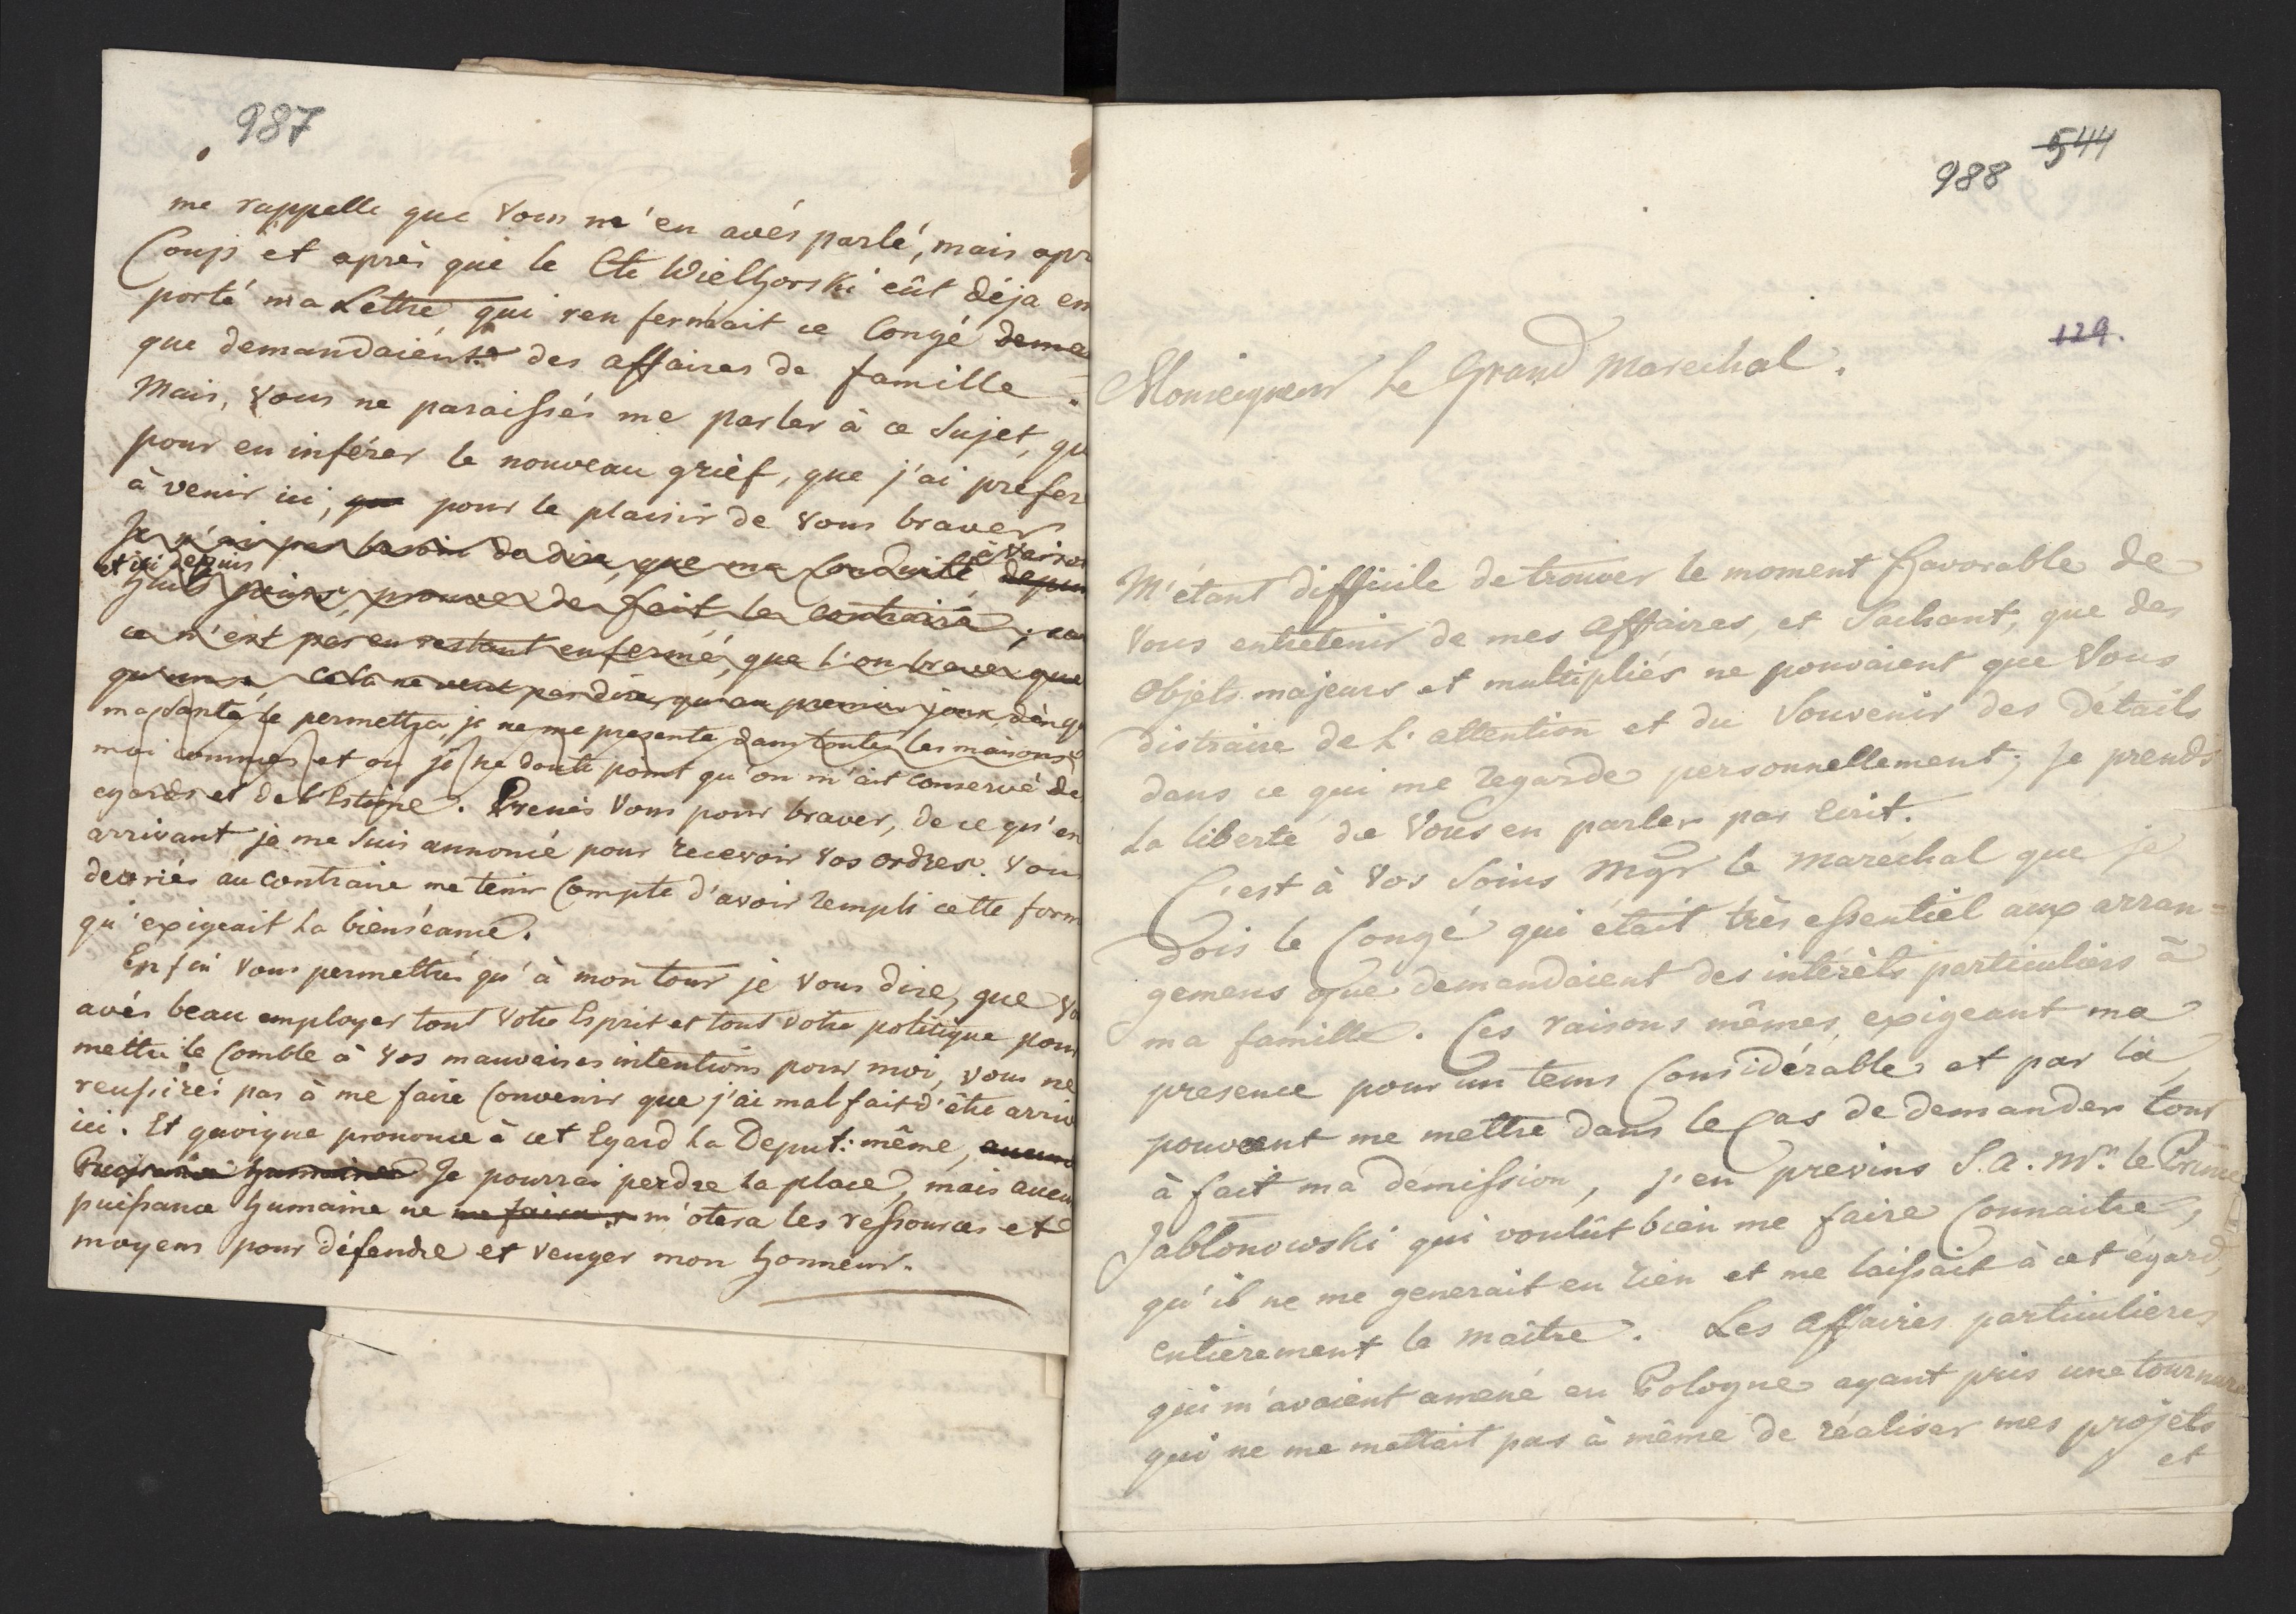 987
me rappelle que Vous m'en avés parlé, mais apr
Coup et après que le Cte Wielhorski eût déja em
porté ma Lettre qui renfermait ce Congé dema
que demandaient des affaires de famille.
Mais, Vous ne paraissés me parler à ce Sujet, qu
pour en inférer le nouveau grief, que j'ai préfer
à venir ici, que pour le plaisir de Vous braver
Je n'ai pas besoin de dire, que ma Conduite à Varsov depuis
et ici depuis
huit jours, prouve de fait le contraire; car
ce n'est pas en restant enfermé, que l'on brave que
cela ne veut pas dire, qu'au premier jour, dès q
ma Santé le permettra, je ne me presente dans toutes les maisons
moi connues et ou je ne doute point qu'on m'ait conservé de
egards et de l'Estime. Prenés Vous pour braver, de ce qu'en
arrivant je me Suis annoncé pour recevoir Vos ordres. Vous
devriés au contraire me tenir Compte d'avoir rempli cette form
qu'exigeait la bienséance.
Enfin Vous permettrés qu'à mon tour je Vous dise, que Vo
avés beau employer tout Votre Esprit et tout Votre politique pour
mettre le Comble à Vos mauvaises intentions pour moi, Vous ne
reussirés pas à me faire Convenir que j'ai mal fait d'être arriv
ici. Et quoique prononce à cet Egard la Deput: même, aucune
Puissance humaine Je pourrai perdre la place, mais aucu
puissance humaine ne me faira m'otera les ressources et
moyens pour défendre et venger mon honneur.
544
988
129.
Monseigneur Le Grand Marechal.
M'étant difficile de trouver le moment favorable de
Vous entretenir de mes Affaires, et Sachant, que des
Objets majeurs et multipliés ne pouvaient que Vous
distraire de L'attention et du Souvenir des détails
dans ce qui me regarde personnellement; Je prends
la liberté de Vous en parler par Ecrit.
C'est à Vos Soins Mgr le Marechal que je
Dois le Congé qui était très essentiel aux arran=
gemens que demandaient des intérêts particuliers à
ma famille. Ces raisons mêmes exigeant ma
presence pour un tems Considérable, et par là
pouvant me mettre dans le Cas de demander tout
à fait ma démission, j'en previns S.A. Mr. le Prince
Jabłonowski qui voulût bien me faire Connaitre,
qu'il ne me generait en rien et me laissait à cet égard,
entierement le maître. Les Affaires particulieres
qui m'avaient amené en Pologne ayant pris une tournure
qui ne me mettait pas à même de réaliser mes projets
et